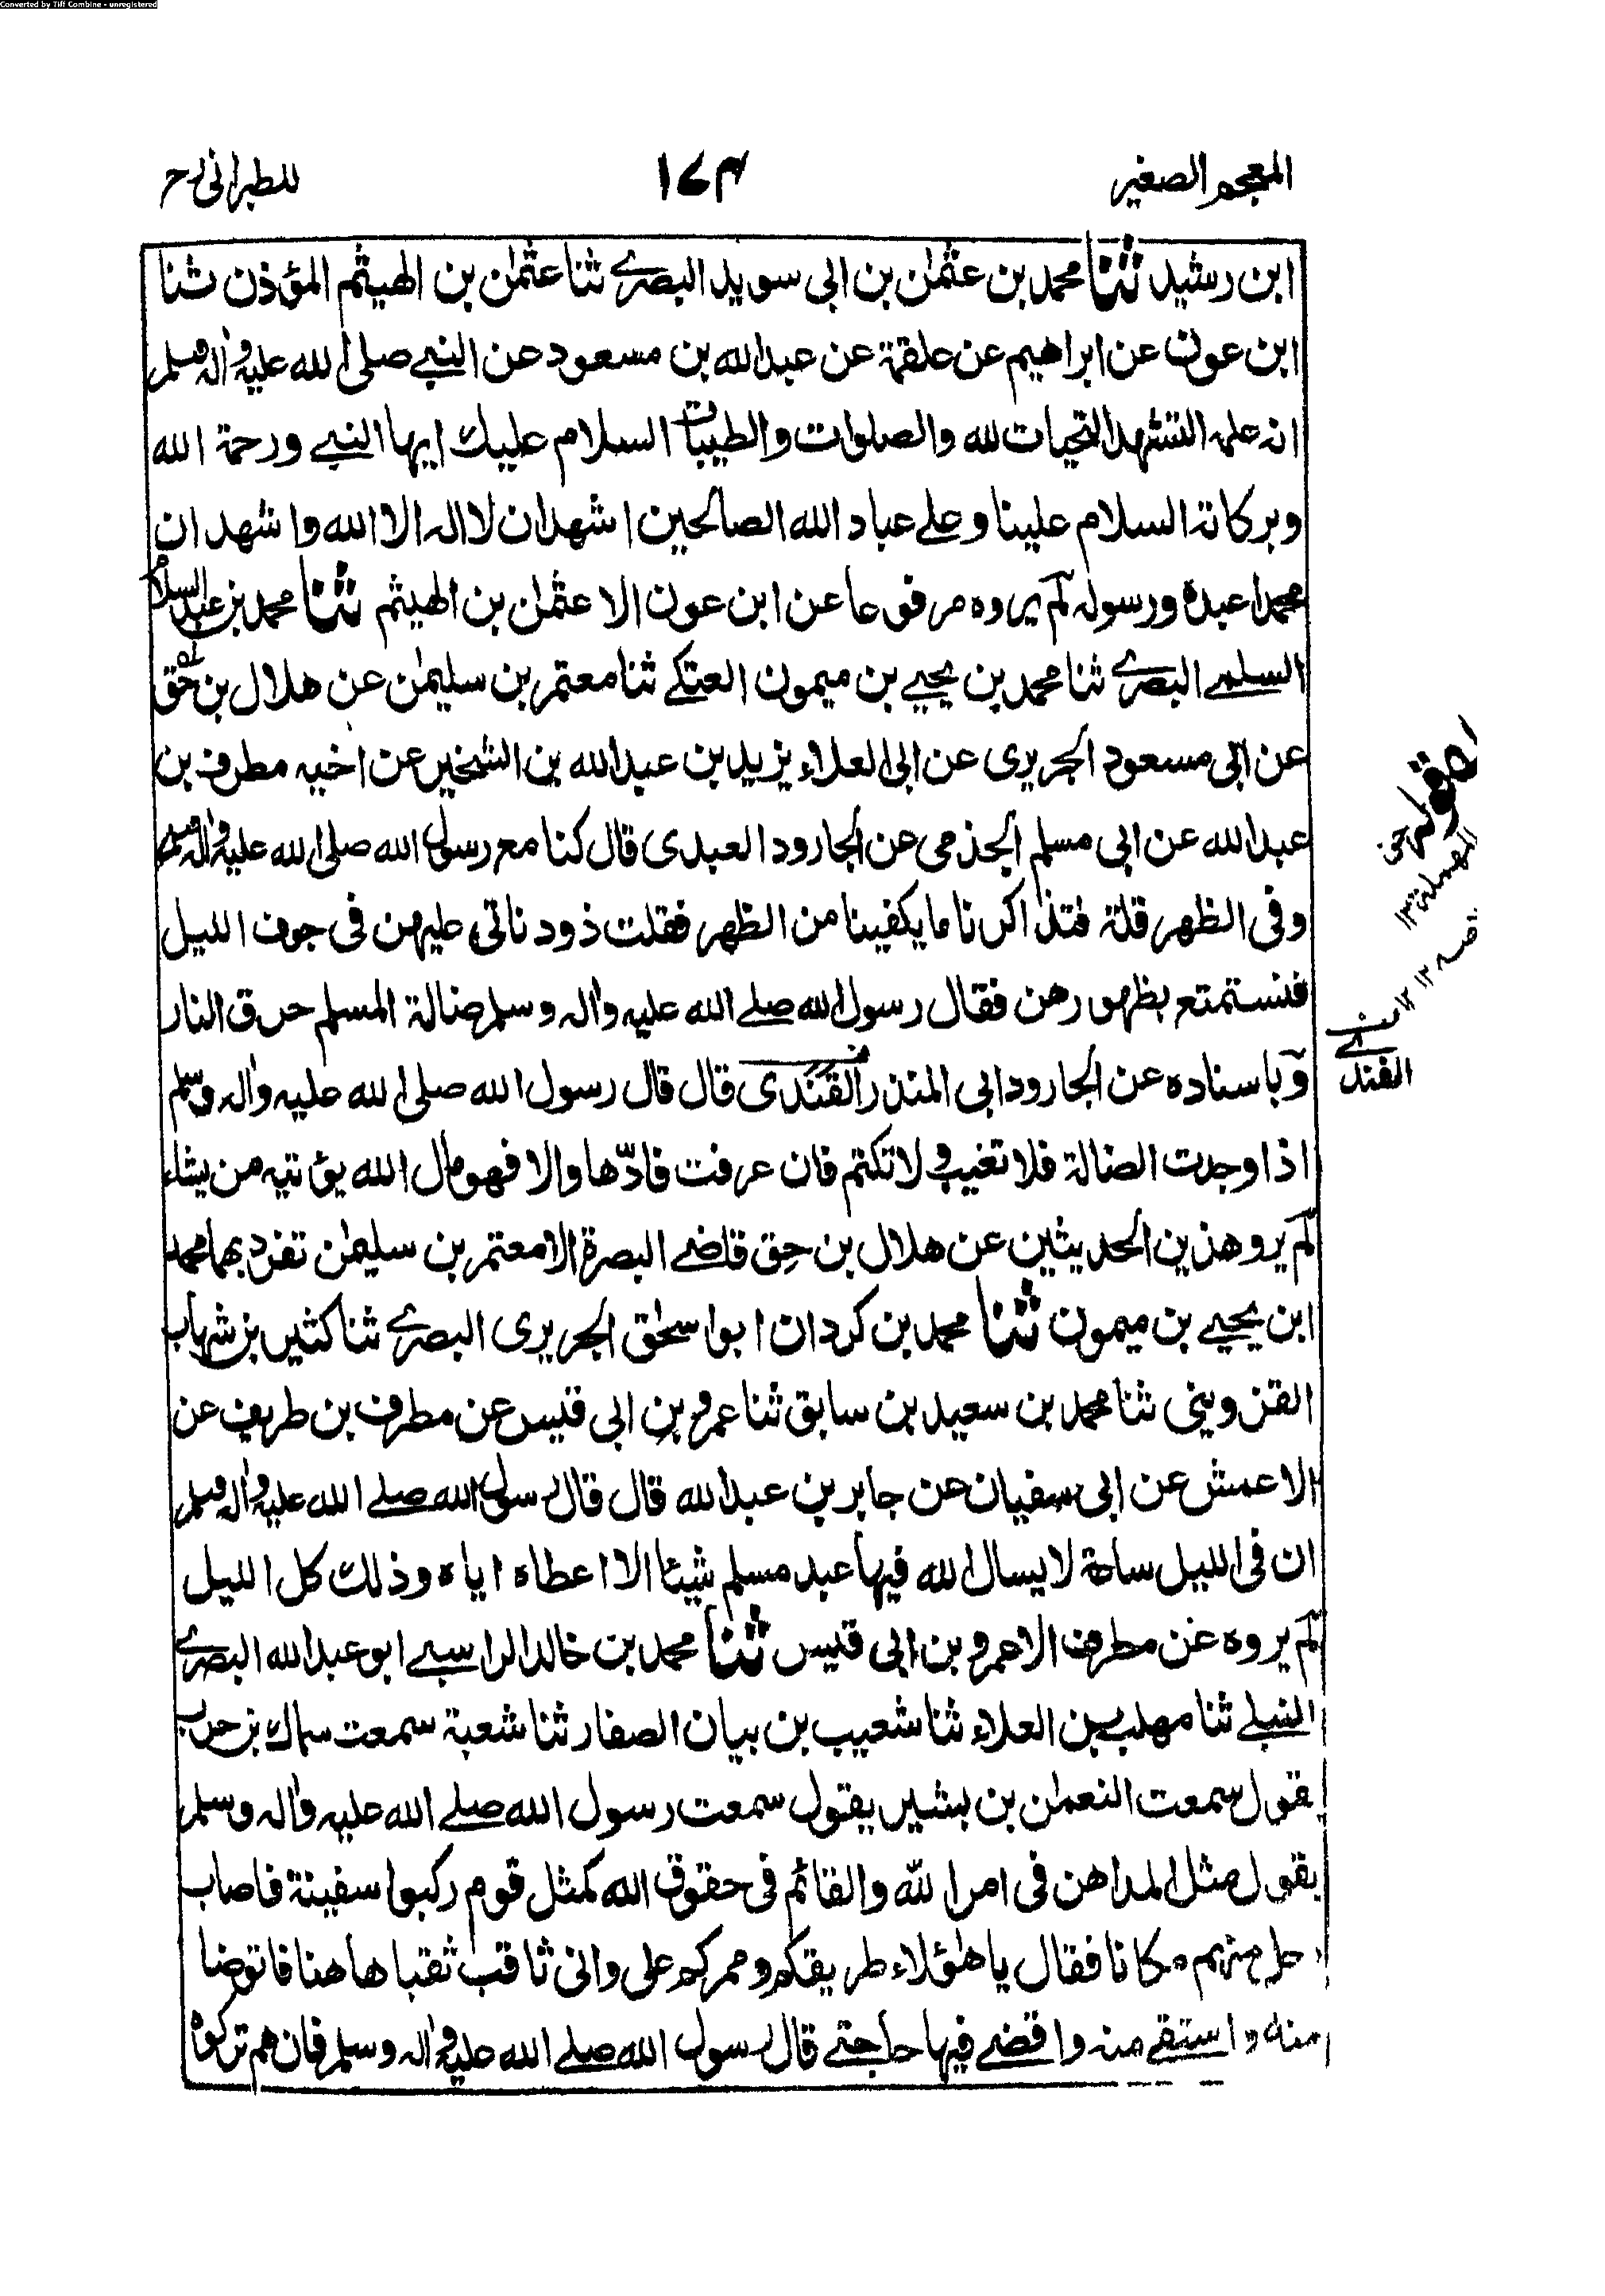 Converted by Tiff Combine - unregistered
المعجم الصغير
١٧٣
للطبرانى رح
ابن رشيد ثنا محمد بن عثمٰن بن ابى سويد البصرے ثنا عثمٰن بن الهيثم المؤذن ثنا
ابن عون عن ابراهيم عن علقمة عن عبدالله بن مسعود عن النبے صلى الله عليه واٰله وسلم
انه علمه التشهد التحيات لله والصلوات والطيبات السلام عليك ايها النبے ورحمة الله
وبركاته السلام علينا وعلے عباد الله الصالحين اشهد ان لا اله الا الله واشهد ان
محمدا عبده ورسوله لم يروه مرفوعا عن ابن عون الا عثمٰن بن الهيثم ثنا محمد بن عبد السلام
السلمے البصرے ثنا محمد بن يحيے بن ميمون العتكے ثنا معتمر بن سليمٰن عن هلال بن حق
عن ابى مسعود الجريرى عن ابى العلاء يزيد بن عبدالله بن الشخير عن اخيه مطرف بن
عبدالله عن ابى مسلم الجذمى عن الجارود العبدى قال كنا مع رسول الله صلى الله عليه واٰله وسلم
وفى الظهر قلة فتذاكرنا ما يكفينا من الظهر فقلت ذود ناتى عليهن فى جوف الليل
فنستمتع بظهورهن فقال رسول الله صلے الله عليه واٰله وسلم ضالة المسلم حرق النار
وباسناده عن الجارود ابى المنذر القندى قال قال رسول الله صلى الله عليه واٰله وسلم
اذا وجدت الضالة فلا تغيب ولا تكتم فان عرفت فادّها والا فهو مال الله يؤتيه من يشاء
لم يرو هذين الحديثين عن هلال بن حِق قاضے البصرة الا معتمر بن سليمٰن تفرد بهما محمد
ابن يحيے بن ميمون ثنا محمد بن كردان ابو اسحٰق الجريرى البصرے ثنا كثير بن شهاب
القزوينى ثنا محمد بن سعيد بن سابق ثنا عمرو بن ابى قيس عن مطرف بن طريف عن
الاعمش عن ابى سفيان عن جابر بن عبدالله قال قال رسول الله صلے الله عليه واٰله وسلم
ان فى الليل ساعة لا يسال الله فيها عبد مسلم شيئا الا اعطاه اياه وذلك كل الليل
لم يروه عن مطرف الا عمرو بن ابى قيس ثنا محمد بن خالد الراسبے ابو عبدالله البصرے
النيلے ثنا مهلب بن العلاء ثنا شعيب بن بيان الصفار ثنا شعبة سمعت سماك بن حرب
يقول سمعت النعمٰن بن بشير يقول سمعت رسول الله صلے الله عليه واٰله وسلم
يقول مثل المداهن فى امر الله والقائم فى حقوق الله كمثل قوم ركبوا سفينة فاصاب
رجل منهم مكانا فقال يا هٰؤلاء طريقكم وممركم على وانى ثاقب ثقبا هاهنا فاتوضا
منه واستقے منه واقضے فيها حاجتے قال رسول الله صلے الله عليه واٰله وسلم فان هم تركوه
المهملة ١٢
القند